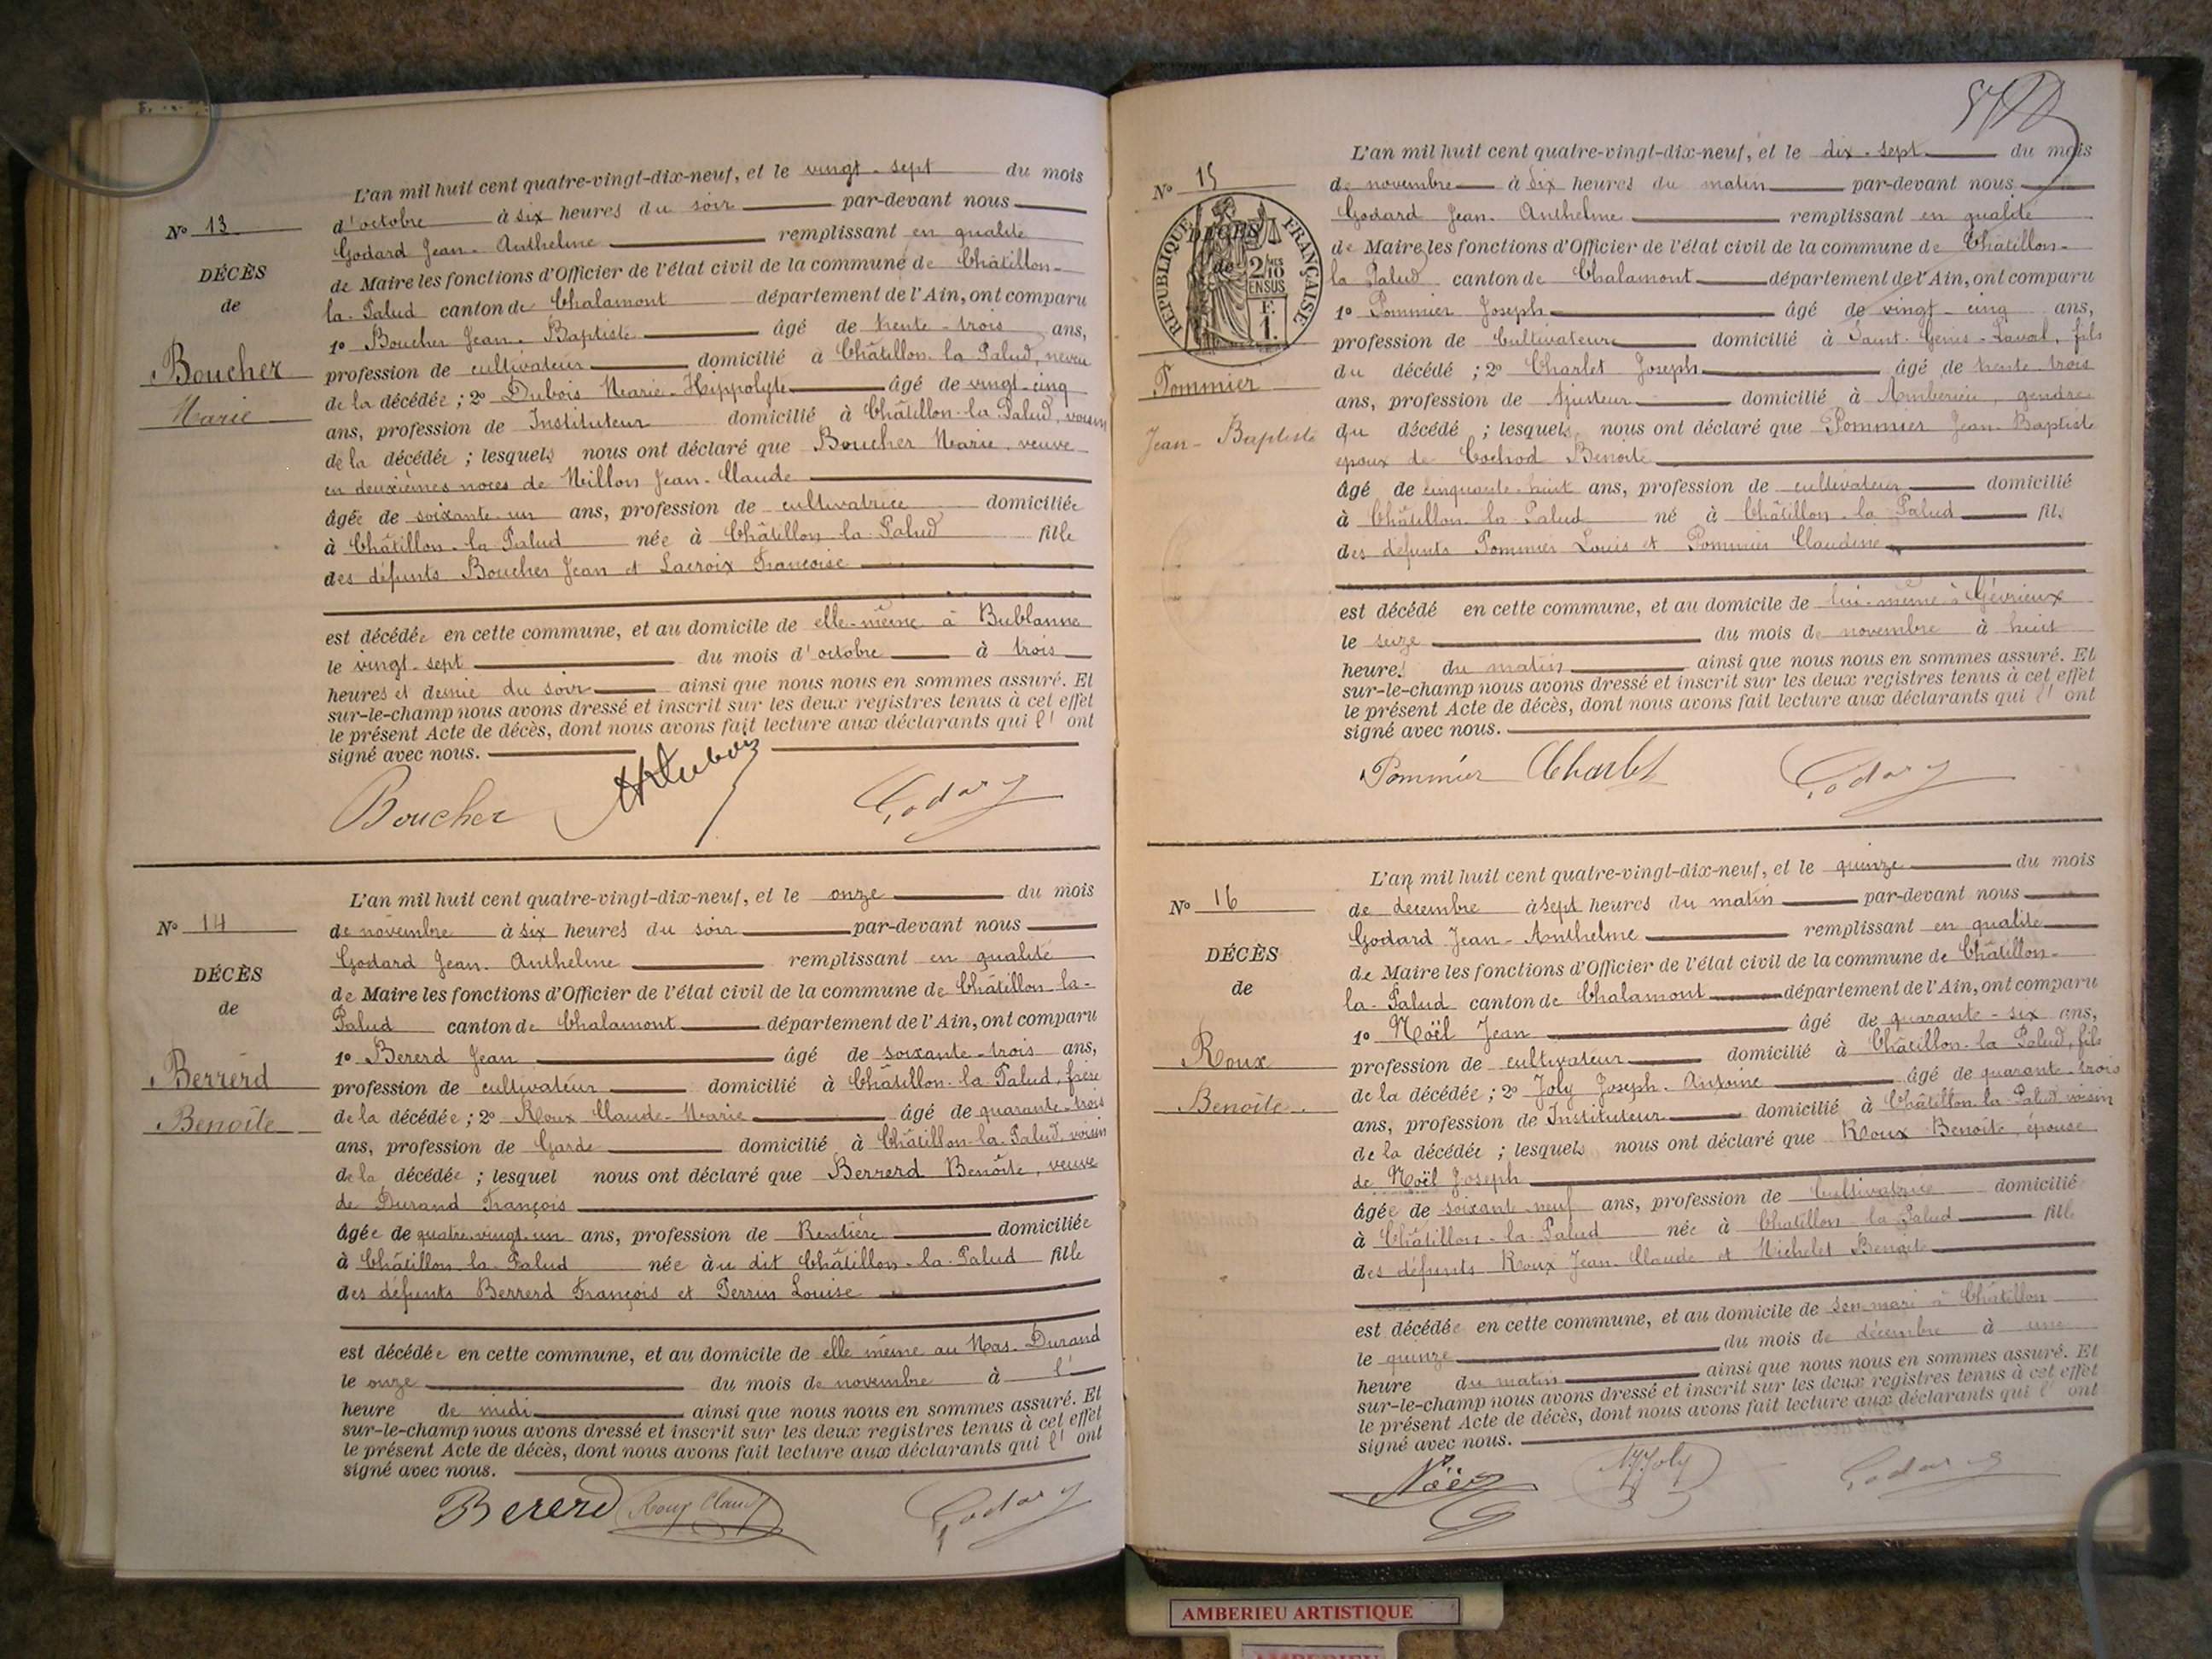 L'an mil huit cent quatre-vingt-dix-neuf, et le vingt-sept du mois
N° 13
d'octobre à six heures du soir par-devant nous
Godard Jean-Anthelme remplissant en qualité
DÉCÈS
de Maire les fonctions d'Officier de l'état civil de la commune de Châtillon-
de
la-Palud canton de Chalamont département de l'Ain, ont comparu
1° Boucher Jean-Baptiste âgé de trente-trois ans,
Boucher
profession de cultivateur domicilié à Châtillon-la-Palud, neveu
Marie
de la décédée ; 2° Dubois Marie-Hippolyte âgé de vingt-cinq
ans, profession de Instituteur domicilié à Châtillon-la-Palud, voisin
de la décédée ; lesquels nous ont déclaré que Boucher Marie, veuve
en deuxièmes noces de Millon Jean-Claude
âgée de soixante-un ans, profession de cultivatrice domiciliée
à Châtillon-la-Palud née à Châtillon-la-Palud fille
des défunts Boucher Jean et Lacroix Françoise
est décédée en cette commune, et au domicile de elle-même à Bublanne
le vingt-sept du mois d'octobre à trois
heures et demie du soir ainsi que nous nous en sommes assuré. Et
sur-le-champ nous avons dressé et inscrit sur les deux registres tenus à cet effet
le présent Acte de décès, dont nous avons fait lecture aux déclarants qui l'ont
signé avec nous.
Boucher MHDubois Godard
L'an mil huit cent quatre-vingt-dix-neuf, et le onze du mois
N° 14
de novembre à six heures du soir par-devant nous
Godard Jean-Anthelme remplissant en qualité
DÉCÈS
de Maire les fonctions d'Officier de l'état civil de la commune de Châtillon-la-
de
Palud canton de Chalamont département de l'Ain, ont comparu
1° Bererd Jean âgé de soixante-trois ans,
Berrerd
profession de cultivateur domicilié à Châtillon-la-Palud, frère
Benoîte
de la décédée ; 2° Roux Claude-Marie âgé de quarante-trois
ans, profession de Garde domicilié à Châtillon-la-Palud, voisin
de la décédée ; lesquel nous ont déclaré que Berrerd Benoîte, veuve
de Durand François
âgée de quatre-vingt-un ans, profession de Rentière domiciliée
à Châtillon-la-Palud née à u dit Châtillon-la-Palud fille
des défunts Berrerd François et Perrin Louise
est décédée en cette commune, et au domicile de elle même au Mas-Durand
le onze du mois de novembre à l'
heure de midi ainsi que nous nous en sommes assuré. Et
sur-le-champ nous avons dressé et inscrit sur les deux registres tenus à cet effet
le présent Acte de décès, dont nous avons fait lecture aux déclarants qui l'ont
signé avec nous.
Bererd Roux Claude Godard
L'an mil huit cent quatre-vingt-dix-neuf, et le dix-sept du mois
N° 15
de novembre à six heures du matin par-devant nous
Godard Jean-Anthelme remplissant en qualité
RÉPUBLIQUE FRANÇAISE
DÉCÈS
de
2/10 EN SUS
F. 1.
de Maire les fonctions d'Officier de l'état civil de la commune de Châtillon-
la Palud canton de Chalamont département de l'Ain, ont comparu
1° Pommier Joseph âgé de vingt-cinq ans,
profession de Cultivateur domicilié à Saint-Genis-Laval, fils
Pommier
du décédé ; 2° Charlet Joseph âgé de trente-trois
ans, profession de Ajusteur domicilié à Ambérieu, gendre
Jean-Baptiste
du décédé ; lesquels nous ont déclaré que Pommier Jean-Baptiste
époux de Cochod Benoîte
âgé de cinquante-huit ans, profession de cultivateur domicilié
à Châtillon-la-Palud né à Châtillon-la-Palud fils
des défunts Pommier Louis et Pommier Claudine
est décédé en cette commune, et au domicile de lui-même à Gévrieux
le seize du mois de novembre à huit
heures du matin ainsi que nous nous en sommes assuré. Et
sur-le-champ nous avons dressé et inscrit sur les deux registres tenus à cet effet
le présent Acte de décès, dont nous avons fait lecture aux déclarants qui l'ont
signé avec nous.
Pommier Charlet Godard
L'an mil huit cent quatre-vingt-dix-neuf, et le quinze du mois
N° 16
de décembre à sept heures du matin par-devant nous
Godard Jean-Anthelme remplissant en qualité
DÉCÈS
de Maire les fonctions d'Officier de l'état civil de la commune de Châtillon-
de
la-Palud canton de Chalamont département de l'Ain, ont comparu
1° Noël Jean âgé de quarante-six ans,
Roux
profession de cultivateur domicilié à Châtillon-la-Palud, fils
Benoîte.
de la décédée ; 2° Joly Joseph-Antoine âgé de quarant-trois
ans, profession de Instituteur domicilié à Châtillon-la-Palud voisin
de la décédée ; lesquels nous ont déclaré que Roux Benoîte, épouse
de Noël Joseph
âgée de soixant-neuf ans, profession de Cultivatrice domicilié
à Châtillon-la-Palud née à Chatillon-la-Palud fille
des défunts Roux Jean-Claude et Michelet Benoîte
est décédée en cette commune, et au domicile de son mari à Châtillon
le quinze du mois de décembre à une
heure du matin ainsi que nous nous en sommes assuré. Et
sur-le-champ nous avons dressé et inscrit sur les deux registres tenus à cet effet
le présent Acte de décès, dont nous avons fait lecture aux déclarants qui l' ont
signé avec nous.
Noël Joly Godard
AMBERIEU ARTISTIQUE
AMBERIEU